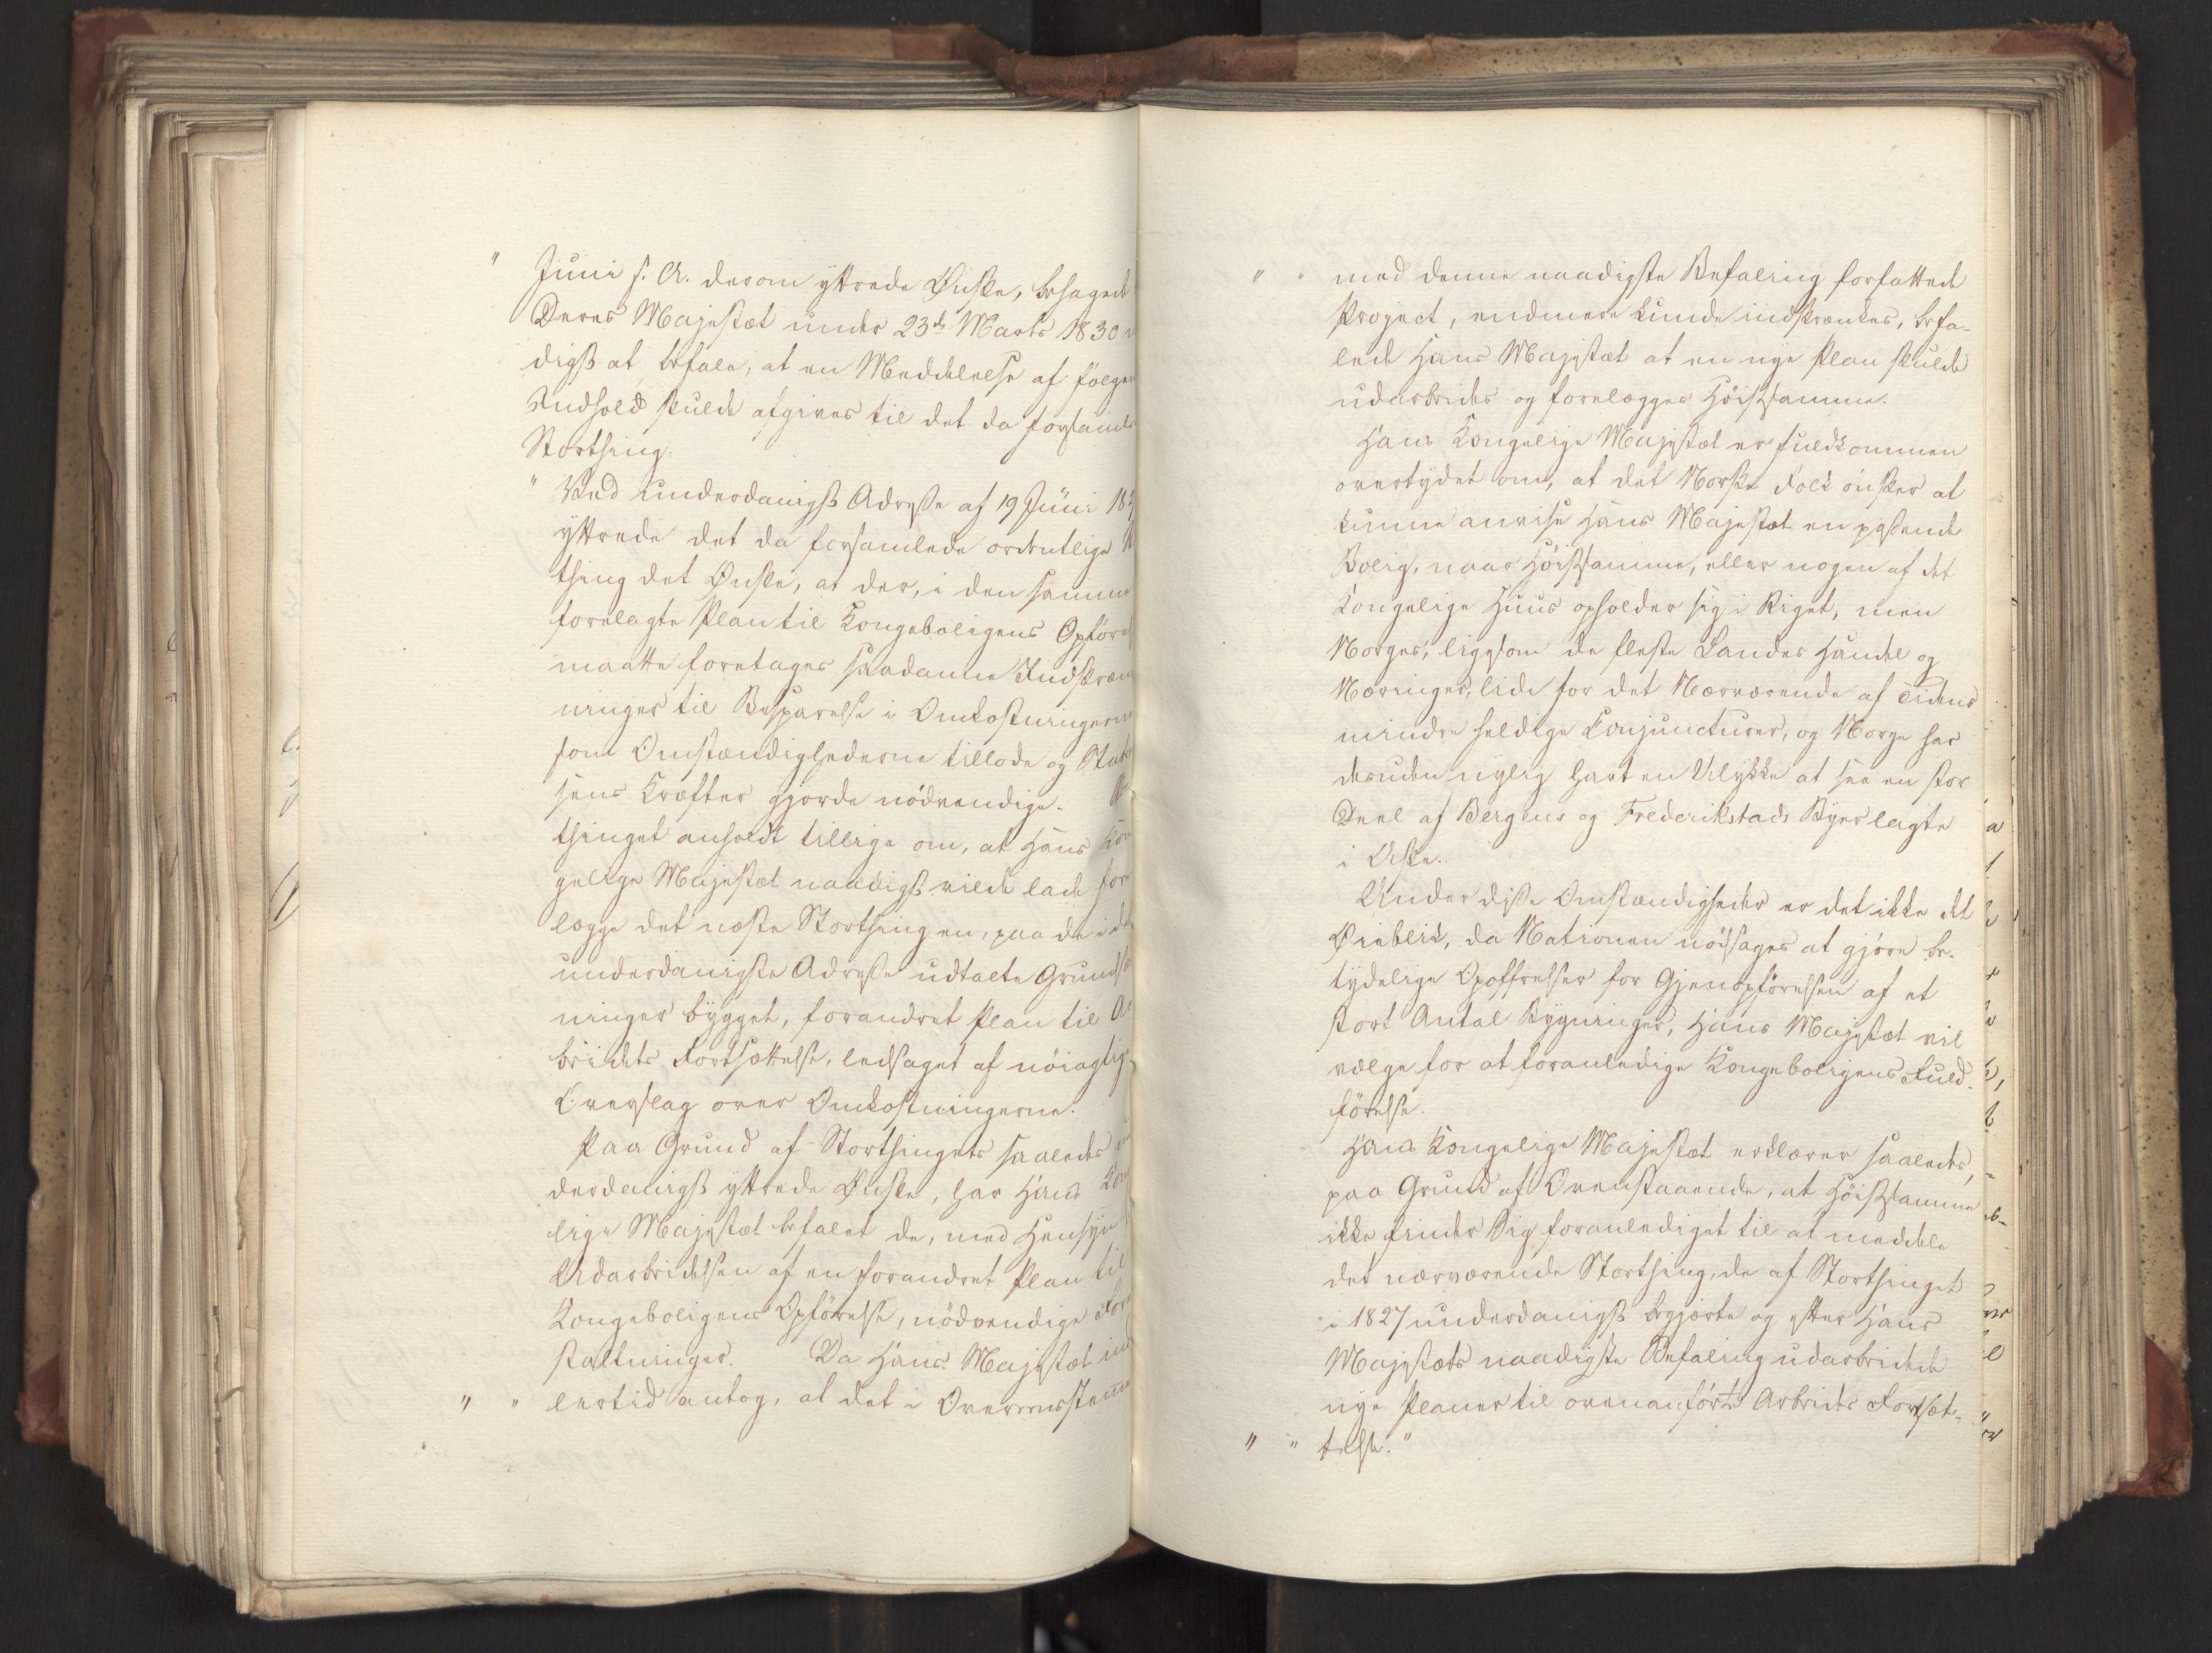 " Juni s. A. derom yttrede Ønske, behagede
Deres Majestæt under 23de Marts 1830
digst at befale, at en Meddelelse af følgen
Indhold skulde afgives til det da forsamle
Storthing:
" Ved underdanigst Adresse af 19 Juni 18
yttrede det da forsamlede ordentlige
thing det Ønske, at der, i den samme
forelagte Plan til Kongeboligens Opførel
maatte foretages saadanne Indskræn
ninger til Besparelse i Omkostningerne
som Omstændighederne tillode og Stats
sens Kræfter gjorde nødvendige.
thinget anholdt tillige om, at Hans Kon
gelige Majestæt naadigst vilde lade fore
lægge det næste Storthing en, paa de i de
underdanigste Adresse udtalte Grundsæ
ninger bygget, forandret Plan til Ar
beidets Fortsættelse, ledsaget af nøiagtig
Overslag over Omkostningerne.
Paa Grund af Storthingets saaledes
derdanigst yttrede Ønske, har Hans Kon
lige Majestæt befalet de, med Hensyn
Udarbeidelsen af en forandret Plan til
Kongeboligens Opførelse, nødvendige For
staltninger. Da Hans Majestæt imid
" " lertid antog, at det i Overensstemm
" " med denne naadigste Befaling forfattede
Project, endmere kunde indskrænkes, befa-
lede Hans Majestæt at en nye Plan skulde
udarbeides og forelægges Høistsamme.
Hans Kongelige Majestæt er fuldkommen
overtydet om, at det Norske Folk ønsker at
kunne anvise Hans Majestæt en passende
Bolig, naar Høistsamme, eller nogen af det
Kongelige Huus opholder sig i Riget, men
Norges, ligesom de fleste Landes Handel og
Næringer, lide for det Nærværende af Tidens
mindre heldige Conjuncturer, og Norge har
desuden nylig havt en Ulykke at see en stor
Deel af Bergens og Frederikstads Byer lagte
i Aske.
Under disse Omstændigheder er det ikke det
Øieblik, da Nationen nødsages at gjøre be-
tydelige Opoffrelser for Gjenopførelsen af et
stort Antal Bygninger, Hans Majestæt vil
vælge for at foranledige Kongeboligens Fuld-
førelse.
Hans Kongelige Majestæt erklærer saaledes,
paa Grund af Ovenstaaende, at Høistsamme
ikke finder Sig foranlediget til at meddele
det nærværende Storthing, de af Storthinget
i 1827 underdanigst begjærte og efter Hans
Majestæts naadigste Befaling udarbeidede
nye Planer til ovenanførte Arbeides Fortsæt-
" " telse."